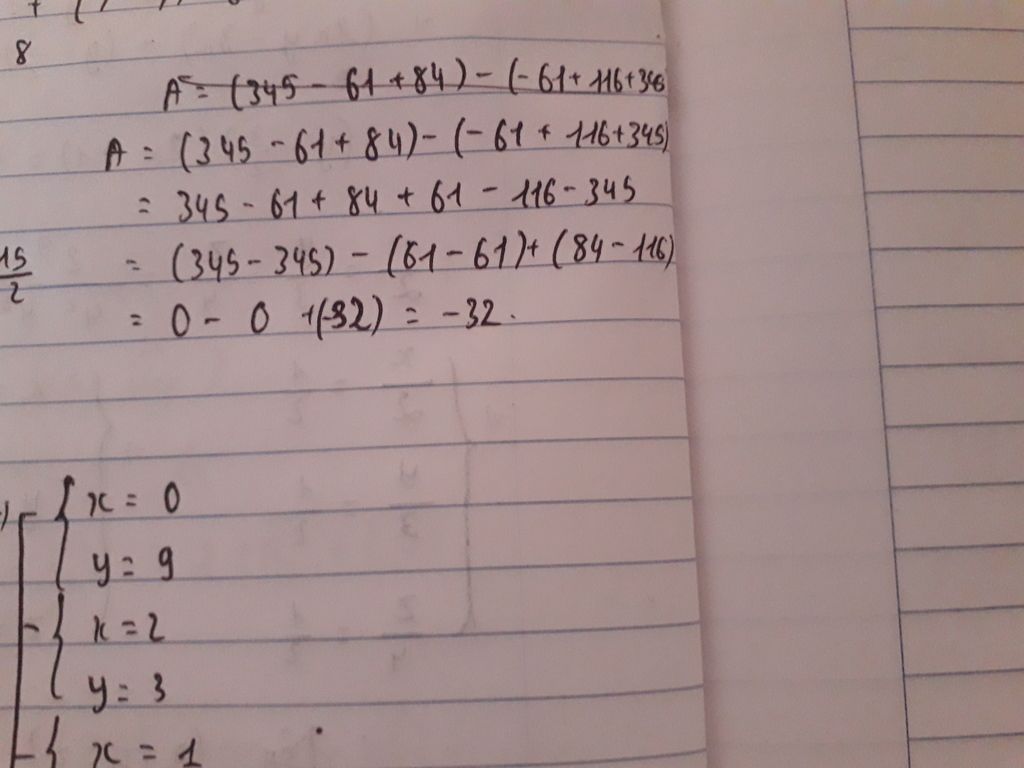 8
A = (345 - 61 + 84) - (-61 + 116 + 345
A = (345 - 61 + 84) - (-61 + 116 + 345)
= 345 - 61 + 84 + 61 - 116 - 345
15/2
= (345 - 345) - (61 - 61) + (84 - 116)
= 0 - 0 + (-32) = -32.
x = 0
y = 9
x = 2
y = 3
x = 1